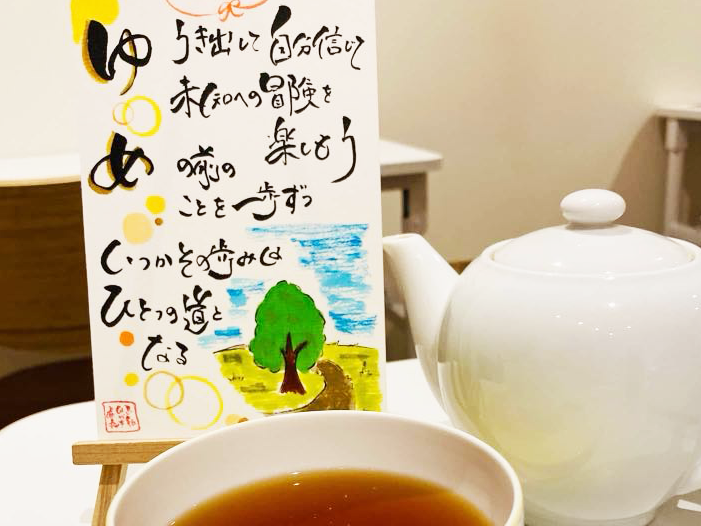 ゆうき出して 自分信じて
未知への冒険を
楽しもう
めの前の
ことを一歩ずつ
いつかその歩みは
ひとつの道と
なる